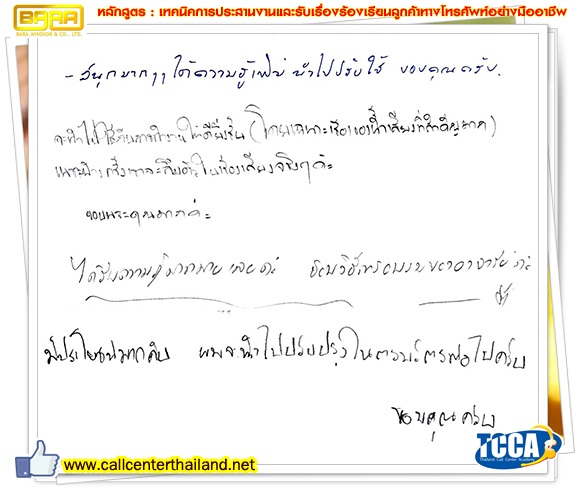 BARA
BARA WINDSOR & CO., LTD.
หลักสูตร : เทคนิคการประสานงานและรับเรื่องร้องเรียนลูกค้าทางโทรศัพท์อย่างมืออาชีพ
- สนุกมากๆๆ ได้ความรู้เพิ่ม นำไปปรับใช้ ขอบคุณครับ.
จะนำไปใช้กับการทำงานให้ดียิ่งขึ้น (โดยเฉพาะเรื่องของน้ำเสียงที่สำคัญมาก)
เพราะบางครั้งเราจะลืมตัวในเรื่องเสียงจริงๆค่ะ
ขอบพระคุณมากค่ะ
ได้รับความรู้มากมายเลยค่ะ ชอบวิธีการอบรมของอาจารย์ค่ะ
มีประโยชน์มากครับ ผมจะนำไปปรับปรุงในการบริการต่อไปครับ
ขอบคุณครับ
www.callcenterthailand.net
TCCA
Thailand Call Center Academy